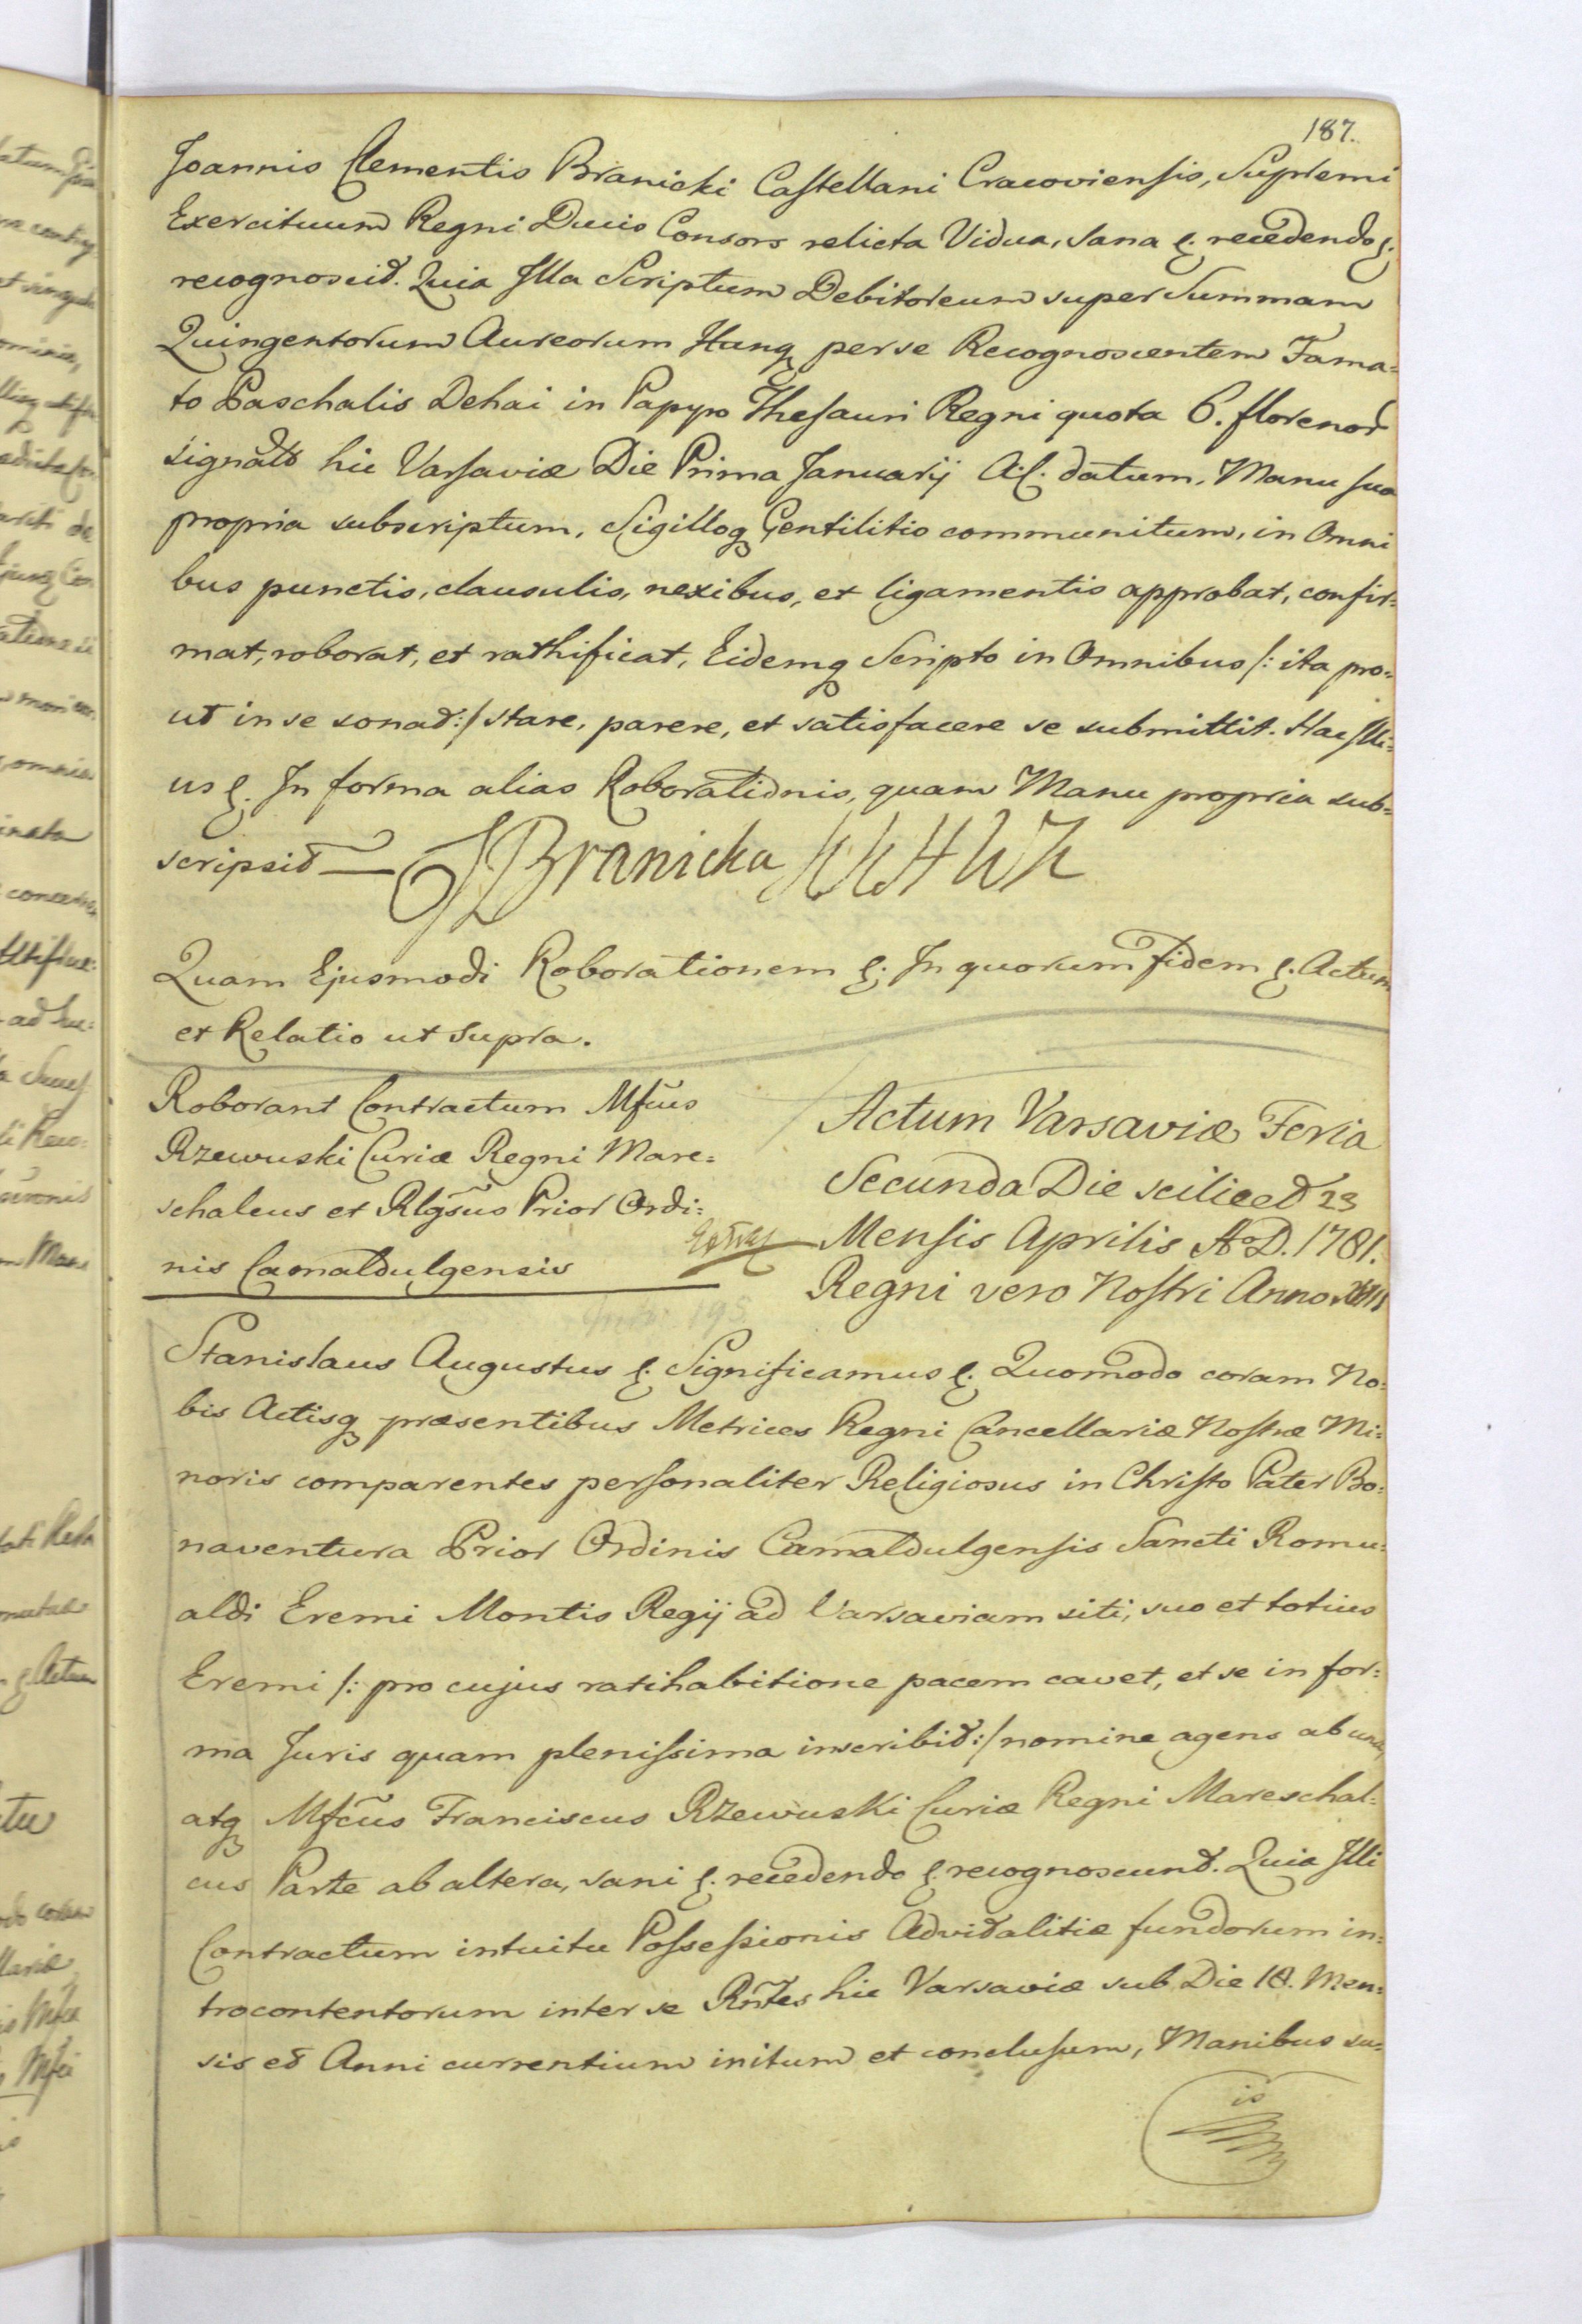 187.
Joannis Clementis Branicki Castellani Cracoviensis, Supremi
Exercituum Regni Ducis Consors relicta Vidua, sana &. recedendo &.
recognoscit. Quia Illa Scriptum Debitoreum super Summam
Quingentorum Aureorum Hung perse Recognoscentem Fama-
to Paschalis Dehai in Papyro Thesauri Regni quota 6. florenor
signato hic Varsaviæ Die Prima Januarij A.C. datum, Manu sua
propria subscriptum, Sigilloq Gentilitio communitum, in Omni
bus punctis, clausulis, nexibus, et ligamentis approbat, confir=
mat, roborat, et rathificat, Eidemq Scripto in Omnibus /: ita pro=
ut in se sonat :/ stare, parere, et satisfacere se submittit. Hac Illi=
us &. In forma alias Roborationis, quam Manu propria sub=
scripsit — J Branicka
Quam Ejusmodi Roborationem &. In quorum fidem &. Actum
et Relatio ut Supra.
Roborant Contractum Mfcus
Rzewuski Curiæ Regni Mare=
schalcus et Rlgsus Prior Ordi=
nis Camaldulgensis
Actum Varsaviæ Feria
Secunda Die scilicet 23
Mensis Aprilis A.D. 1781.
Regni vero Nostri Anno
Stanislaus Augustus &. Significamus &. Quomodo coram No=
bis Actisq præsentibus Metrices Regni Cancellariæ Nostræ Mi=
noris comparentes personaliter Religiosus in Christo Pater Bo=
naventura Prior Ordinis Camaldulgensis Sancti Romu=
aldi Eremi Montis Regij ad Varsaviam siti, suo et totius
Eremi /: pro cujus ratihabitione pacem cavet, et se in for=
ma Juris quam plenissima inscribit :/ nomine agens ab una,
atq Mfcus Franciscus Rzewuski Curiæ Regni Mareschal=
cus Parte ab altera, sani &. recedendo &. recognoscunt. Quia Illi
Contractum intuitu Possessionis Advitalitiæ fundorum in=
trocontentorum inter se Rntes hic Varsaviæ sub Die 18. Men=
sis et Anni currentium initum et conclusum, Manibus su=
is